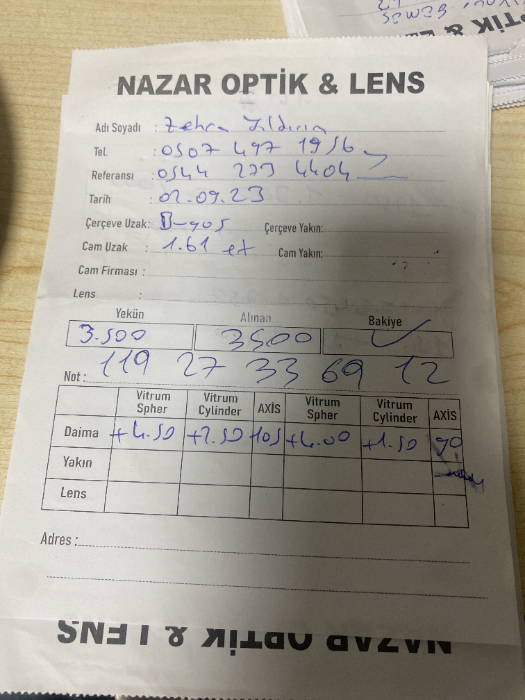 NAZAR OPTİK & LENS
Adı Soyadı : Zehra Yıldırım
Tel. : 0507 497 1956
Referansı : 0544 273 4404
Tarih : 02.09.23
Çerçeve Uzak: Çerçeve Yakın:
Cam Uzak : 1.61 et Cam Yakın:
Cam Firması :
Lens :
Yekün Alınan Bakiye
3.500 3500
Not : 119 27 33 69 12
Vitrum Spher Vitrum Cylinder AXİS Vitrum Spher Vitrum Cylinder AXİS
Daima +4.50 105 +4.00 +1.50 90
Yakın
Lens
Adres :
NAZAR OPTİK & LENS